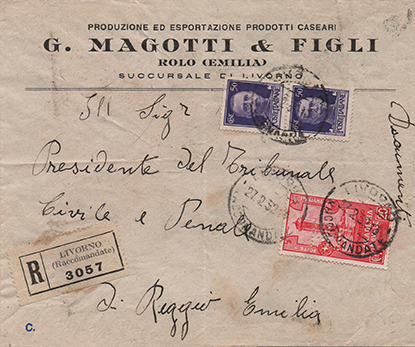 PRODUZIONE ED ESPORTAZIONE PRODOTTI CASEARI
G. MAGOTTI & FIGLI
ROLO (EMILIA)
SUCCURSALE DI LIVORNO
Ill Sigr
Presidente del Tribunale
Civile e Penale
di Reggio Emilia
Documenti
R
LIVORNO
(Raccomandate)
3057
LIVORNO
27.2.32
C.